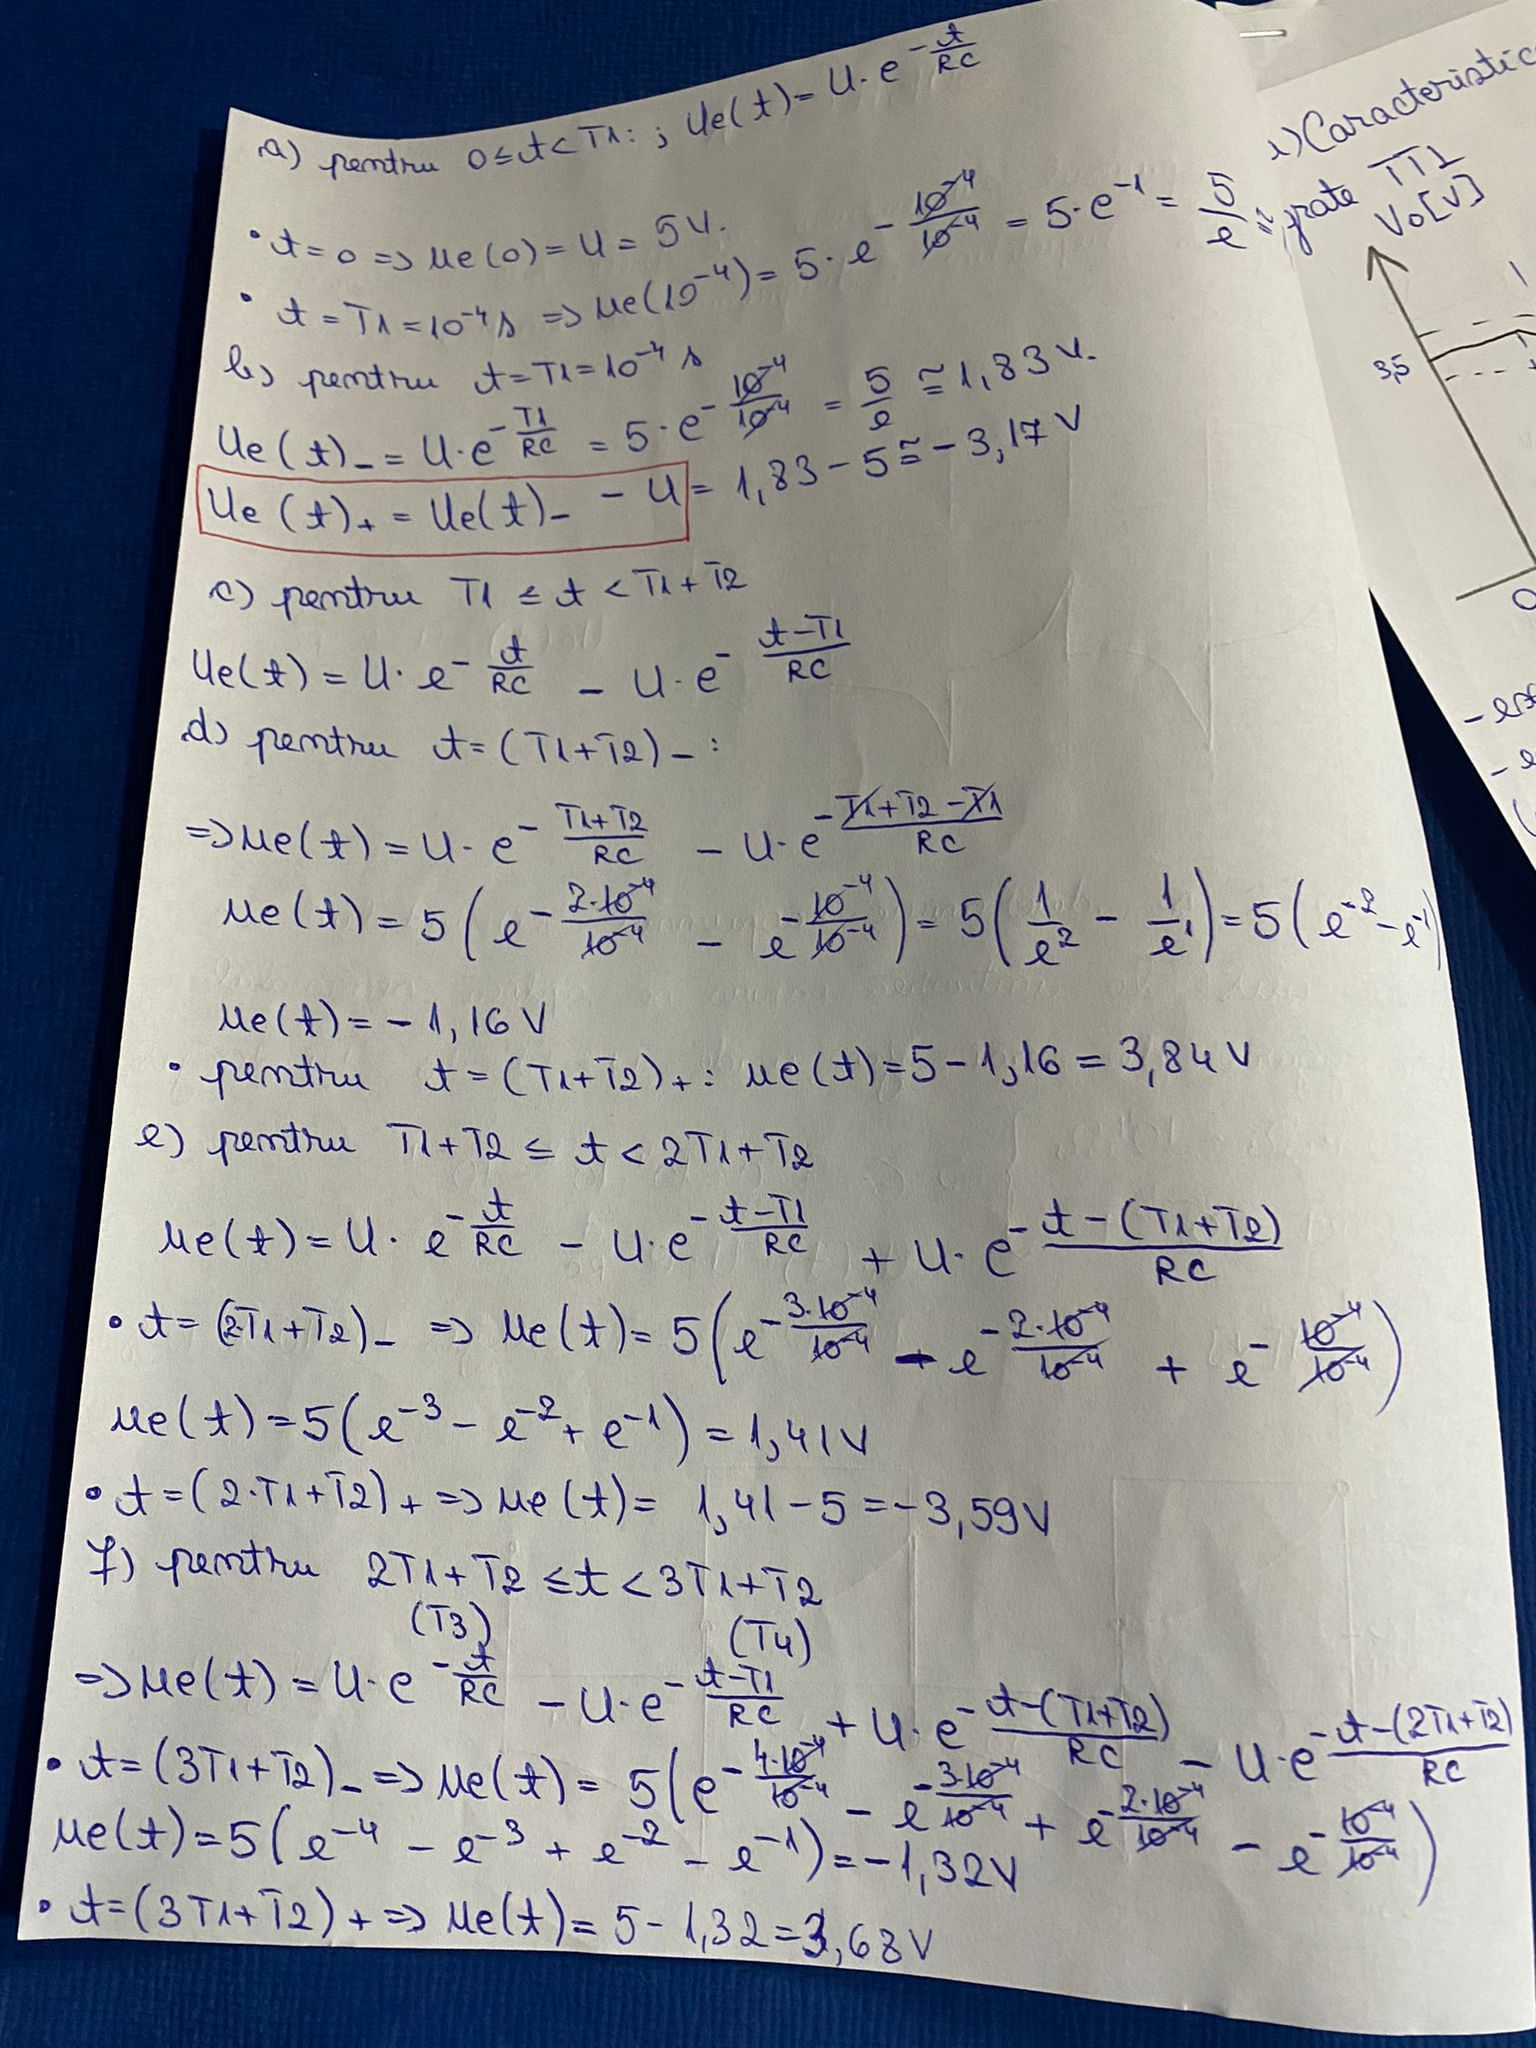 a) pentru 0≤t<T1: ; Ue(t)=U·e^-t/RC
• t=0 => ue(0)=U=5V.
• t=T1=10^-4 s => ue(10^-4)=5·e^-10^-4/10^-4 = 5·e^-1 = 5/e ≅
b) pentru t=T1=10^-4 s
Ue(t)_- = U·e^-T1/RC = 5·e^-10^-4/10^-4 = 5/e ≅ 1,83 V.
Ue(t)_+ = Ue(t)_- - U = 1,83-5 ≅ -3,17 V
c) pentru T1 ≤ t < T1+T2
Ue(t) = U·e^-t/RC - U·e^-t-T1/RC
d) pentru t=(T1+T2)_- :
=> ue(t) = U·e^-T1+T2/RC - U·e^-T1+T2-T1/RC
ue(t) = 5(e^-2·10^-4/10^-4 - e^-10^-4/10^-4) = 5(1/e^2 - 1/e^1) = 5(e^-2-e^-1)
ue(t) = -1,16 V
• pentru t=(T1+T2)_+ : ue(t)=5-1,16=3,84 V
e) pentru T1+T2 ≤ t < 2T1+T2
ue(t)=U·e^-t/RC - U·e^-t-T1/RC + U·e^-t-(T1+T2)/RC
• t=(2·T1+T2)_- => ue(t)=5(e^-3·10^-4/10^-4 - e^-2·10^-4/10^-4 + e^-10^-4/10^-4)
ue(t)=5(e^-3 - e^-2 + e^-1)=1,41V
• t=(2·T1+T2)_+ => ue(t)= 1,41-5=-3,59V
f) pentru 2T1+T2 ≤ t < 3T1+T2
(T3) (T4)
=> ue(t)=U·e^-t/RC - U·e^-t-T1/RC + U·e^-t-(T1+T2)/RC - U·e^-t-(2T1+T2)/RC
• t=(3T1+T2)_- => ue(t)= 5(e^-4·10^-4/10^-4 - e^-3·10^-4/10^-4 + e^-2·10^-4/10^-4 - e^-10^-4/10^-4)
ue(t)=5(e^-4 - e^-3 + e^-2 - e^-1)=-1,32V
• t=(3T1+T2)_+ => ue(t)= 5-1,32=3,68V
1) Caracteristic
TT1
Vo[V]
3,5
0